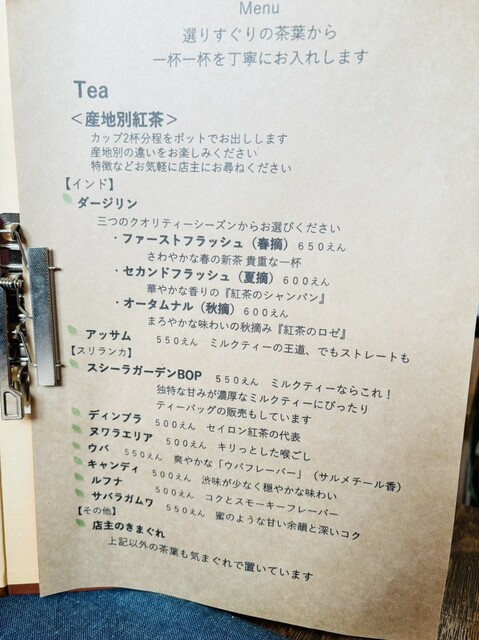 Menu
選りすぐりの茶葉から
一杯一杯を丁寧にお入れします
Tea
＜産地別紅茶＞
カップ2杯分程をポットでお出しします
産地別の違いをお楽しみください
特徴などお気軽に店主にお尋ねください
【インド】
ダージリン
三つのクオリティーシーズンからお選びください
・ファーストフラッシュ（春摘）６５０えん
さわやかな春の新茶 貴重な一杯
・セカンドフラッシュ（夏摘）６００えん
華やかな香りの『紅茶のシャンパン』
・オータムナル（秋摘）６００えん
まろやかな味わいの秋摘み『紅茶のロゼ』
アッサム　５５０えん　ミルクティーの王道、でもストレートも
【スリランカ】
スシーラガーデンBOP　５５０えん　ミルクティーならこれ！
独特な甘みが濃厚なミルクティーにぴったり
ティーバッグの販売もしています
ディンブラ　５００えん　セイロン紅茶の代表
ヌワラエリア　５００えん　キリっとした喉ごし
ウバ　５５０えん　爽やかな「ウバフレーバー」（サルメチール香）
キャンディ　５００えん　渋味が少なく穏やかな味わい
ルフナ　５００えん　コクとスモーキーフレーバー
サバラガムワ　５５０えん　蜜のような甘い余韻と深いコク
【その他】
店主のきまぐれ
上記以外の茶葉も気まぐれで置いています